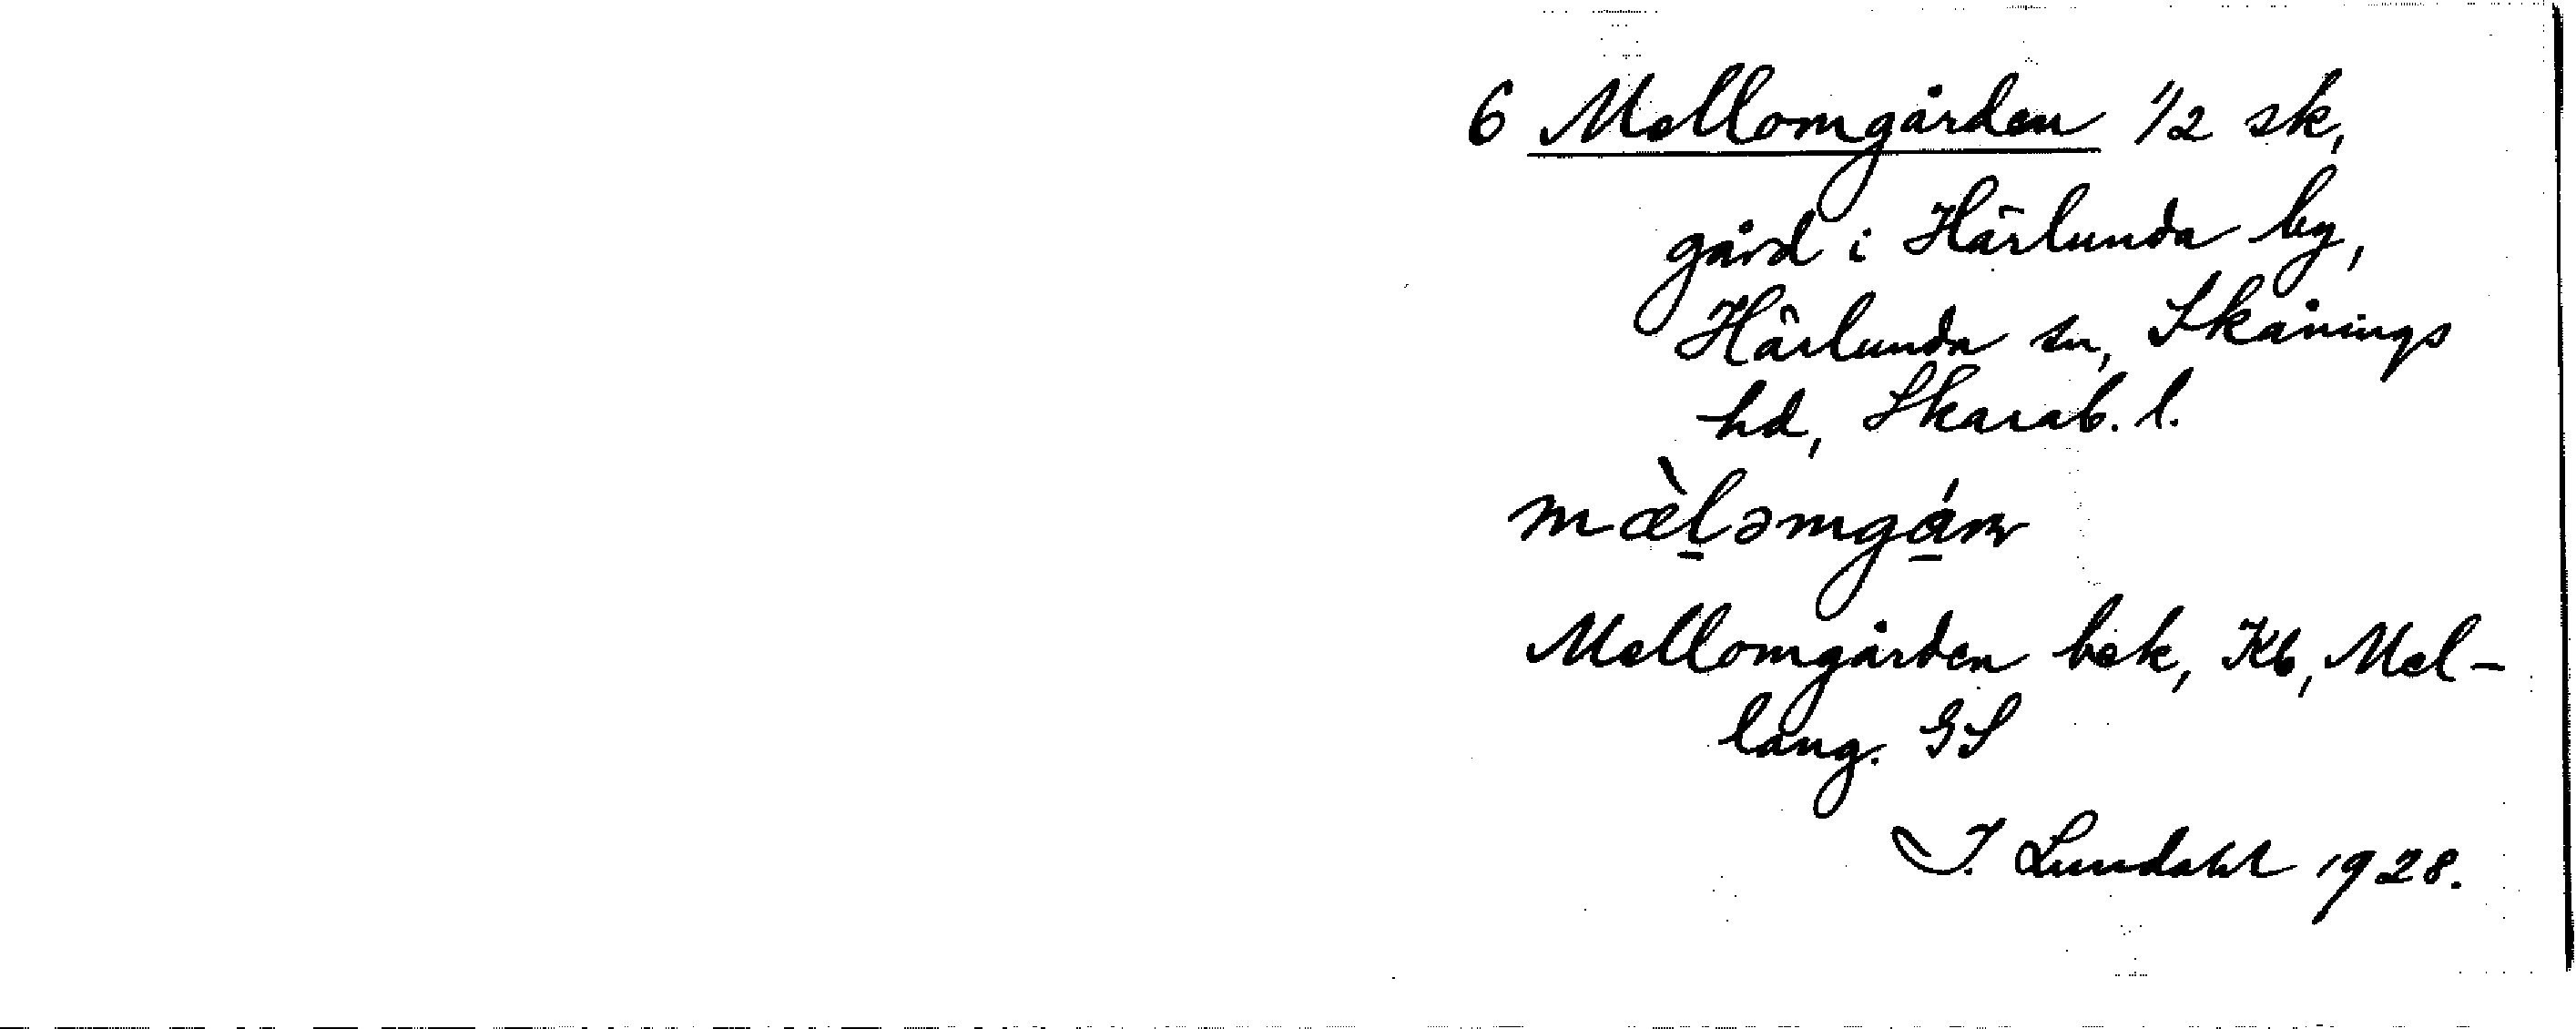 6 Mellomgården 1/2 sk,
gård i Härlunda by,
Härlunda sn, Skånings
hd, Skarab. l.
mæ̀l̠əmgá̠ɳ
Mellomgården bek, Kb, Mel-
lang. GS
I. Lundahl 1928.